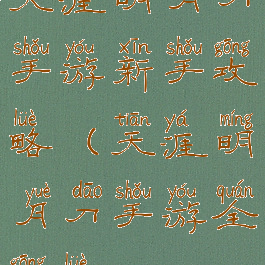 天涯明月刀
shǒu yóu xīn shǒu gōng
手游新手攻
lüè tiān yá míng
略（天涯明
yuè dāo shǒu yóu quán
月刀手游全
gōng lüè